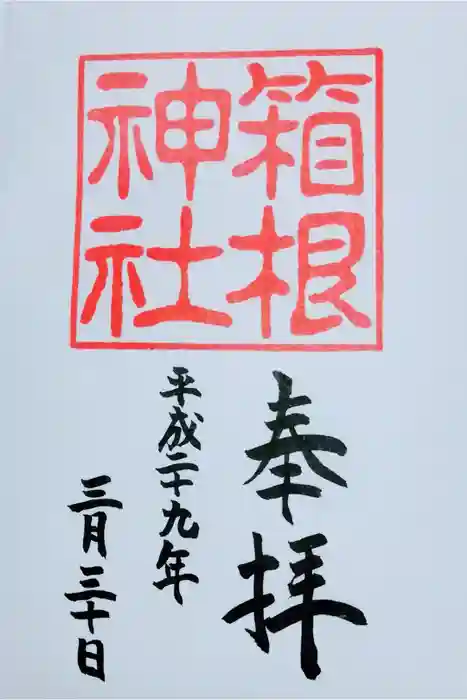 箱根
神社
奉拝
平成二十九年
三月三十日